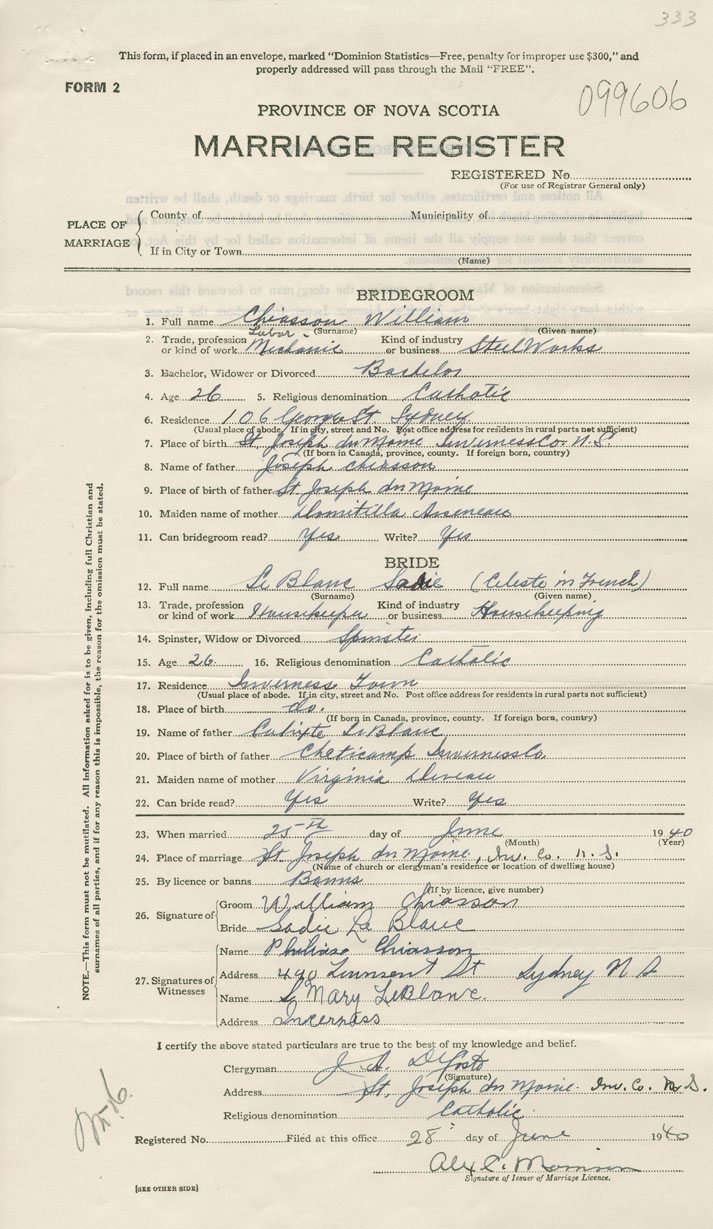 333
This form, if placed in an envelope, marked "Dominion Statistics—Free, penalty for improper use $300," and
properly addressed will pass through the Mail "FREE".
FORM 2
099606
PROVINCE OF NOVA SCOTIA
MARRIAGE REGISTER
REGISTERED No.
(For use of Registrar General only)
PLACE OF MARRIAGE
County of Municipality of
If in City or Town
(Name)
BRIDEGROOM
1. Full name Chiasson William
(Surname) (Given name)
Labor
2. Trade, profession or kind of work Mechanic Kind of industry or business Steel Works
3. Bachelor, Widower or Divorced Bachelor
4. Age 26 5. Religious denomination Catholic
6. Residence 106 George St. Sydney
(Usual place of abode. If in city, street and No. Post office address for residents in rural parts not sufficient)
7. Place of birth St. Joseph du Moine Inverness Co. N.S.
(If born in Canada, province, county. If foreign born, country)
8. Name of father Joseph Chiasson
9. Place of birth of father St Joseph du Moine
10. Maiden name of mother Domitilla Arseneau
11. Can bridegroom read? Yes Write? Yes
BRIDE
12. Full name Le Blanc Sadie (Celeste in French)
(Surname) (Given name)
13. Trade, profession or kind of work Housekeeper Kind of industry or business Housekeeping
14. Spinster, Widow or Divorced Spinster
15. Age 26 16. Religious denomination Catholic
17. Residence Inverness Town
(Usual place of abode. If in city, street and No. Post office address for residents in rural parts not sufficient)
18. Place of birth do.
(If born in Canada, province, county. If foreign born, country)
19. Name of father Calixte LeBlanc
20. Place of birth of father Cheticamp Inverness Co
21. Maiden name of mother Virginia Diveau
22. Can bride read? Yes Write? Yes
23. When married 25th day of June 1940
(Month) (Year)
24. Place of marriage St Joseph du Moine, Inv. Co. N.S.
(Name of church or clergyman's residence or location of dwelling house)
25. By licence or banns Banns
(If by licence, give number)
26. Signature of
Groom William Chiasson
Bride Sadie Le Blanc
27. Signatures of Witnesses
Name Philias Chiasson
Address 490 St Sydney N S
Name Mary LeBlanc.
Address Inverness
I certify the above stated particulars are true to the best of my knowledge and belief.
Clergyman J. A. DeCoste
(Signature)
Address St. Joseph du Moine. Inv. Co. N.S.
Religious denomination Catholic
Registered No. Filed at this office 28 day of June 1940
Signature of Issuer of Marriage Licence.
[SEE OTHER SIDE]
NOTE.—This form must not be mutilated. All information asked for is to be given, including full Christian and
surnames of all parties, and if for any reason this is impossible, the reason for the omission must be stated.